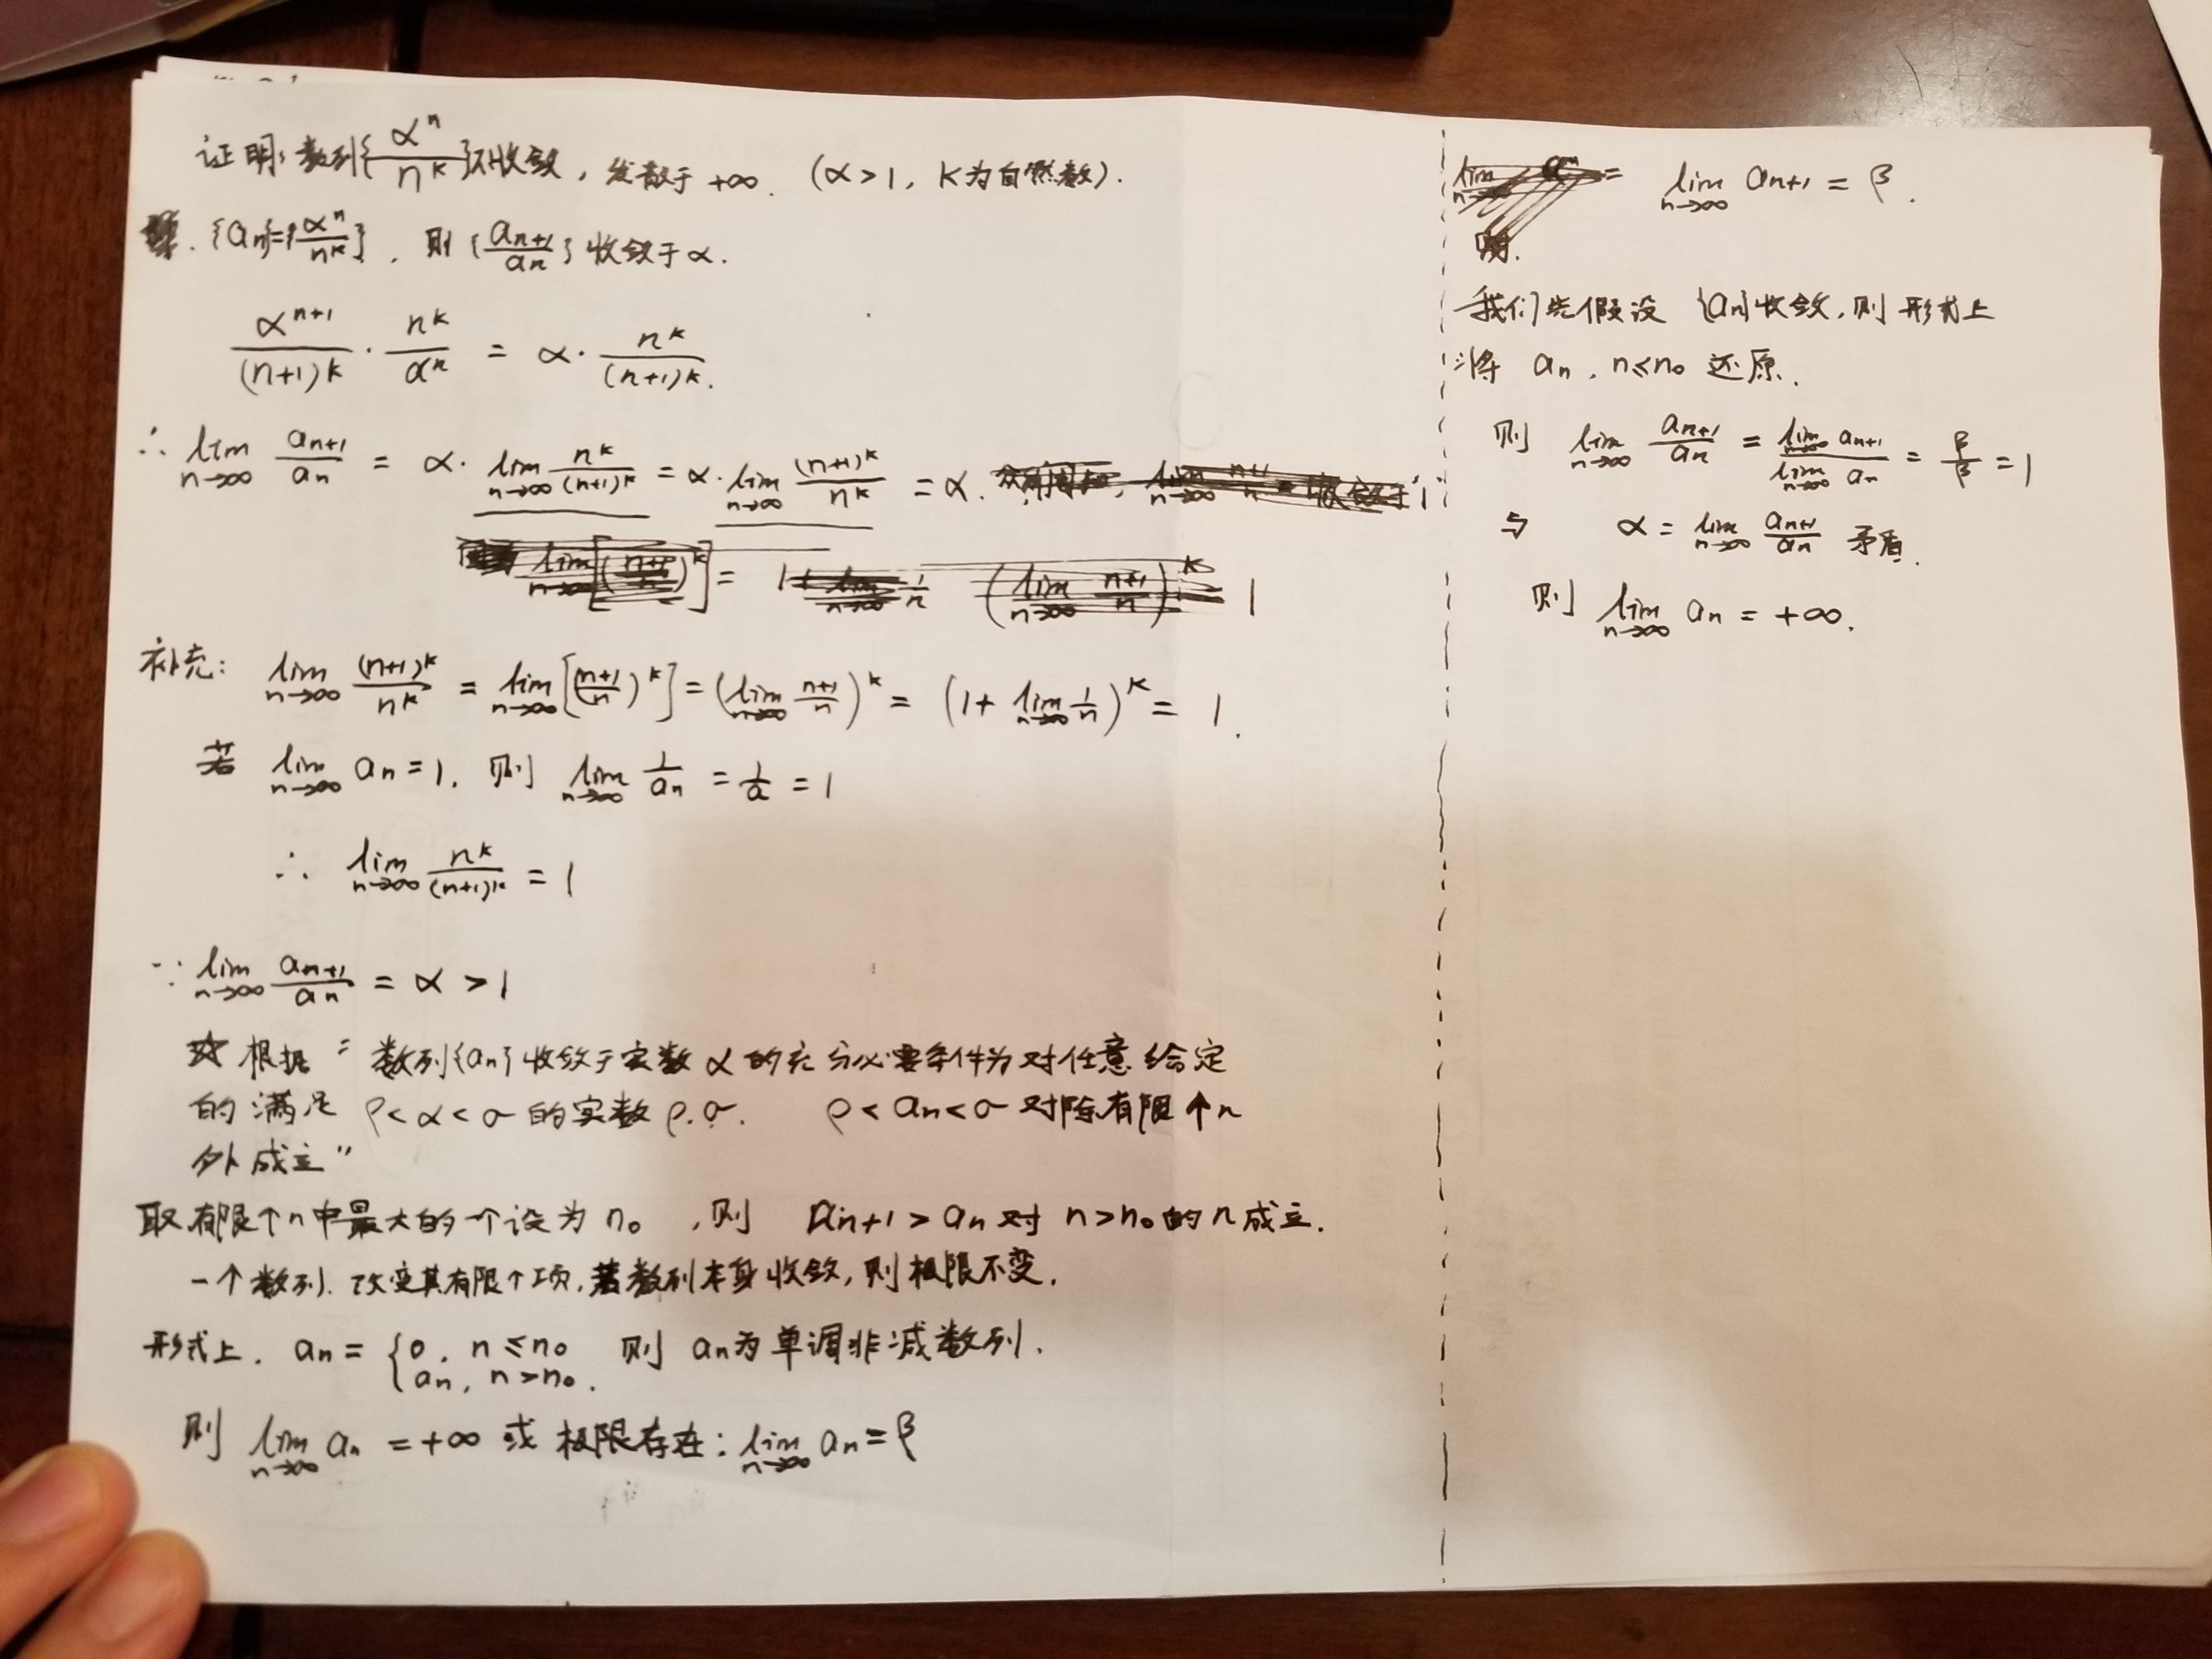 证明:数列{αⁿ/nᵏ}不收敛,发散于+∞. (α>1, k为自然数).
{aₙ}={αⁿ/nᵏ}, 则{aₙ₊₁/aₙ}收敛于α.
αⁿ⁺¹/(n+1)ᵏ · nᵏ/αⁿ = α · nᵏ/(n+1)ᵏ.
∴ lim n→∞ aₙ₊₁/aₙ = α · lim n→∞ nᵏ/(n+1)ᵏ = α · lim n→∞ (n+1)ᵏ/nᵏ = α.
补充: lim n→∞ (n+1)ᵏ/nᵏ = lim n→∞ [((n+1)/n)ᵏ] = (lim n→∞ (n+1)/n)ᵏ = (1 + lim n→∞ 1/n)ᵏ = 1.
若 lim n→∞ aₙ = 1, 则 lim n→∞ 1/aₙ = 1/α = 1
∴ lim n→∞ nᵏ/(n+1)ᵏ = 1
∵ lim n→∞ aₙ₊₁/aₙ = α > 1
根据"数列{aₙ}收敛于实数α的充分必要条件为对任意给定
的满足 ρ<α<σ的实数ρ.σ. ρ<aₙ<σ对除有限个n
外成立"
取有限个n中最大的一个设为n₀, 则 aₙ₊₁>aₙ对n>n₀的n成立.
一个数列.改变其有限个项,若数列本身收敛,则极限不变.
形式上. aₙ = {0, n≤n₀ aₙ, n>n₀. 则 aₙ为单调非减数列.
则 lim n→∞ aₙ = +∞ 或极限存在: lim n→∞ aₙ = β
lim n→∞ aₙ₊₁ = β.
我们先假设{aₙ}收敛,则形式上
将aₙ, n≤n₀还原.
则 lim n→∞ aₙ₊₁/aₙ = lim n→∞ aₙ₊₁ / lim n→∞ aₙ = β/β = 1
与 α = lim n→∞ aₙ₊₁/aₙ 矛盾.
则 lim n→∞ aₙ = +∞.